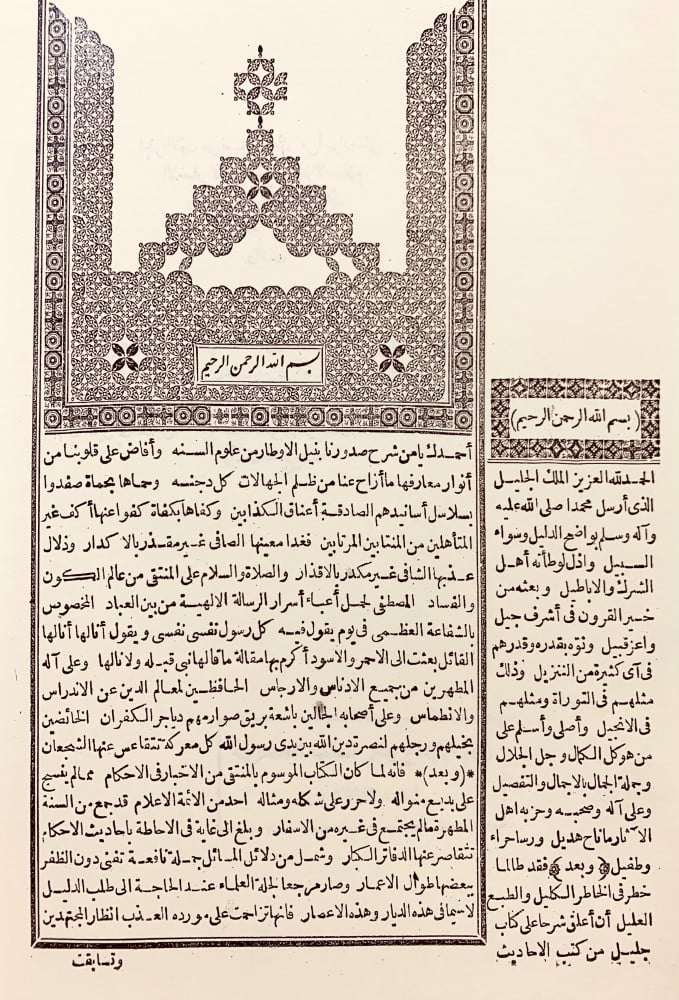 بسم الله الرحمن الرحيم
أحمدك يا من شرح صدورنا بنيل الاوطار من علوم السنه وأفاض على قلوبنا من
أنوار معارفها ما أزاح عنا من ظلم الجهالات كل دجنه وحماها بحماة صفدوا
بسلاسل أسانيدهم الصادقة أعناق الكذابين وكفاها بكفاة كفوا عنها أكف غير
المتأهلين من المنتابين المرتابين فغدا معينها الصافى غير مقذر بالاكدار وزلال
عذبها الشافى غير مكدر بالاقذار والصلاة والسلام على المنتقى من عالم الكون
والفساد المصطفى لحمل أعباء أسرار الرسالة الالهية من بين العباد المخصوص
بالشفاعة العظمى فى يوم يقول فيه كل رسول نفسى نفسى ويقول أنالها أنالها
القائل بعثت الى الاحمر والاسود أكرم بها مقالة ما قالها نبى قبله ولا نالها وعلى آله
المطهرين من جميع الادناس والارجاس الحافظين لمعالم الدين عن الاندراس
والانطماس وعلى أصحابه الجالين باشعة بريق صوارمهم دياجر الكفران الخائضين
بخيلهم ورجلهم لنصرة دين الله بين يدى رسول الله كل معركة تتقاعس عنها الشجعان
*(وبعد)* فانه لما كان الكتاب الموسوم بالمنتقى من الاخبار فى الاحكام مما لم ينسج
على بديع منواله ولا حرر على شكله ومثاله احد من الائمة الاعلام قد جمع من السنة
المطهرة ما لم يجتمع فى غيره من الاسفار وبلغ الى غاية فى الاحاطة باحاديث الاحكام
تتقاصر عنها الدفاتر الكبار وشمل من دلائل المسائل جملة نافعة تفنى دون الظفر
ببعضها طوال الاعمار وصار مرجعا لجلة العلماء عند الحاجة الى طلب الدليل
لا سيما فى هذه الديار وهذه الاعصار فانها تزاحمت على مورده العذب انظار المجتهدين
وتسابقت
(بسم الله الرحمن الرحيم)
الحمد لله العزيز الملك الجليل
الذى أرسل محمدا صلى الله عليه
وآله وسلم بواضح الدليل وسواء
السبيل واذل لوطأته أهل
الشرك والاباطيل وبعثه من
خير القرون فى أشرف جيل
واعز قبيل ونوه بقدره وقدرهم
فى آى كثيرة من التنزيل وذلك
مثلهم فى التوراة ومثلهم
فى الانجيل وأصلى وأسلم على
من هو كل الكمال وجل الجلال
وجملة الجمال بالاجمال والتفصيل
وعلى آله وصحبه وحزبه اهل
الآثار ما ناح هديل ورسا حراء
وطفيل وبعد فقد طالما
خطر فى الخاطر الكليل والطبع
العليل أن أعلق شرحا على كتاب
جليل من كتب الاحاديث